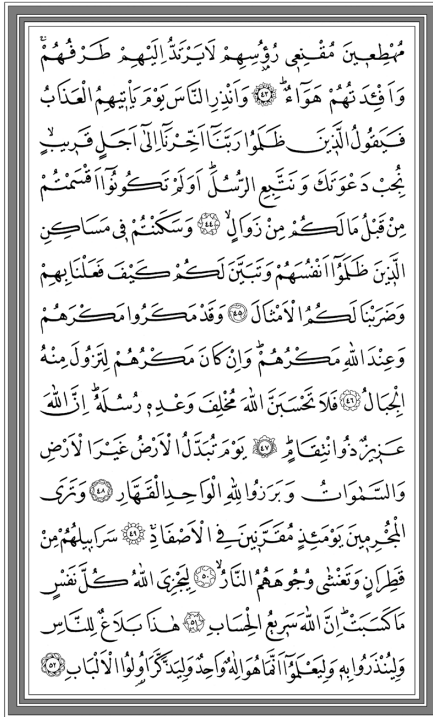 مُهْطِعِينَ مُقْنِعِي رُؤُسِهِمْ لَا يَرْتَدُّ اِلَيْهِمْ طَرْفُهُمْۚ
وَاَفْـِٔدَتُهُمْ هَوَٓاءٌۜ ﴿٤٣﴾ وَاَنْذِرِ النَّاسَ يَوْمَ يَأْتِيهِمُ الْعَذَابُ
فَيَقُولُ الَّذِينَ ظَلَمُوا رَبَّنَٓا اَخِّرْنَٓا اِلٰٓى اَجَلٍ قَرِيبٍۙ
نُجِبْ دَعْوَتَكَ وَنَتَّبِعِ الرُّسُلَۜ اَوَلَمْ تَكُونُٓوا اَقْسَمْتُمْ
مِنْ قَبْلُ مَالَكُمْ مِنْ زَوَالٍۙ ﴿٤٤﴾ وَسَكَنْتُمْ فِي مَسَاكِنِ
الَّذِينَ ظَلَمُٓوا اَنْفُسَهُمْ وَتَبَيَّنَ لَكُمْ كَيْفَ فَعَلْنَا بِهِمْ
وَضَرَبْنَا لَكُمُ الْاَمْثَالَ ﴿٤٥﴾ وَقَدْ مَكَرُوا مَكْرَهُمْ
وَعِنْدَ اللهِ مَكْرُهُمْۜ وَاِنْ كَانَ مَكْرُهُمْ لِتَزُولَ مِنْهُ
الْجِبَالُ ﴿٤٦﴾ فَلَا تَحْسَبَنَّ اللهَ مُخْلِفَ وَعْدِهِ رُسُلَهُۜ اِنَّ اللهَ
عَزِيزٌ ذُو انْتِقَامٍۜ ﴿٤٧﴾ يَوْمَ تُبَدَّلُ الْاَرْضُ غَيْرَ الْاَرْضِ
وَالسَّمٰوَاتُ وَبَرَزُوا لِلّٰهِ الْوَاحِدِ الْقَهَّارِ ﴿٤٨﴾ وَتَرَى
الْمُجْرِمِينَ يَوْمَئِذٍ مُقَرَّنِينَ فِي الْاَصْفَادِۚ ﴿٤٩﴾ سَرَابِيلُهُمْ مِنْ
قَطِرَانٍ وَتَغْشٰى وُجُوهَهُمُ النَّارُۙ ﴿٥٠﴾ لِيَجْزِيَ اللهُ كُلَّ نَفْسٍ
مَا كَسَبَتْۜ اِنَّ اللهَ سَرِيعُ الْحِسَابِ ﴿٥١﴾ هٰذَا بَلَاغٌ لِلنَّاسِ
وَلِيُنْذَرُوا بِهِ وَلِيَعْلَمُٓوا اَنَّمَا هُوَ اِلٰهٌ وَاحِدٌ وَلِيَذَّكَّرَ اُولُوا الْاَلْبَابِ ﴿٥٢﴾